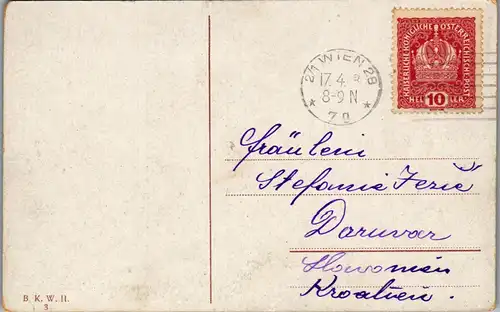 KAISERLICHE KÖNIGLICHE ÖSTERREICHISCHE POST
HELLER
10
2/1 WIEN 2B
17.4
8-9 N
* 7a *
Fräulein
Stefanie Jezič
Daruvar
Slawonien
Kroatien.
B. K. W. II.
3